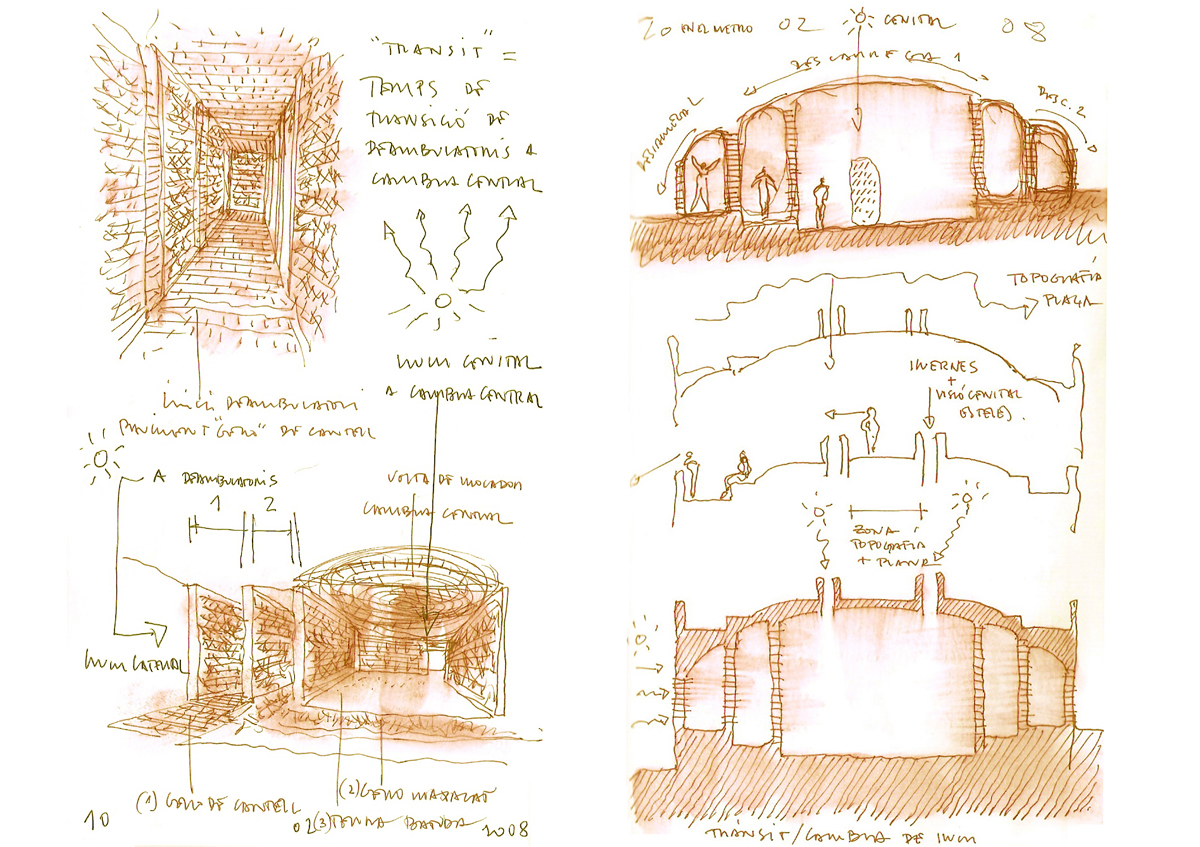 "TRANSIT" =
TEMPS DE
TRANSICIÓ DE
DEAMBULATORIS A
CAMBRA CENTRAL
LLUM CENITAL
A CAMBRA CENTRAL
INICI DEAMBULATORI
PAVIMENT "GERO" DE CANTELL
A DEAMBULATORIS
1 2
VOLTA DE MOCADOR
CAMBRA CENTRAL
LLUM LATERAL
(1) GERO DE CANTELL
(2) GERO MAXACAT
(3) TERRA BATUDA
10 02 2008
20 EN EL METRO 02 08
CENITAL
DESCARREGA 1
DESCARREGA 2
DESC. 2
TOPOGRAFÍA
PLAÇA
LLUERNES
+
VISIÓ CENITAL
(ESTELES).
ZONA
TOPOGRAFIA
+ PLANA
TRÀNSIT/CAMBRA DE LLUM